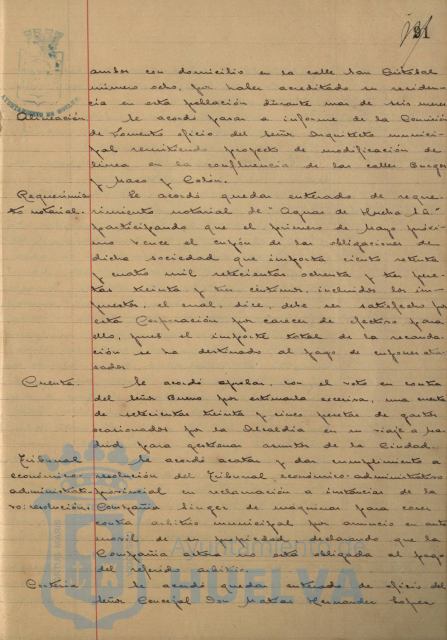 191
AYUNTAMIENTO DE HUELVA
ambos con domicilio en la calle San Cristobal
número ocho, por haber acreditado su residen-
cia en esta población durante mas de seis meses
Alineación
Se acordó pasar a informe de la Comisión
de Fomento oficio del Señor Arquitecto munici-
pal remitiendo proyecto de modificación de
linea en la confluencia de las calles Burgos
y Mazo y Colón.
Requerimien-
to notarial.
Se acordó quedar enterado de reque-
rimiento notarial de "Aguas de Huelva S.A."
participando que el primero de Mayo próxi-
mo vence el cupón de las obligaciones de
dicha sociedad que importa ciento setenta
y cuatro mil setecientas ochenta y tres pese-
tas treinta y tres céntimos, incluidos los im-
puestos, el cual, dice, debe ser satisfecho por
esta Corporación por carecer de efectivo para
ello, pues el importe total de la recauda-
ción se ha destinado al pago de
Cuenta
Se acordó aprobar, con el voto en contra
del Señor Bueno por estimarla excesiva, una cuenta
de setecientas treinta y cinco pesetas de gastos
ocasionados por la Alcaldía en su viaje a Ma-
drid para gestionar asuntos de la Ciudad.
Tribunal
económico-
administrati-
vo: resolución.
Se acordó acatar y dar cumplimiento a
resolución del Tribunal económico-administrativo
provincial en reclamación a instancias de la
Compañia Singer de maquinas para coser
contra arbitrio municipal por anuncio en auto-
movil de su propiedad, declarando que la
Compañia actora no está obligada al pago
del referido arbitrio.
Se acordó quedar enterado de oficio del
Señor Concejal Don Matias Hernandez Lopez
Ayuntamiento de
HUELVA